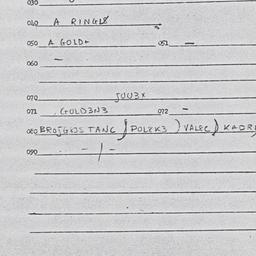 030
040 A RINGLS
050 A GOLD+ 051 —
060 —
070 JOO3X
071 GOLD3N3 072 —
080 BROJGJOS TANC ) POLEK3 ) VALEC )
090 - / -